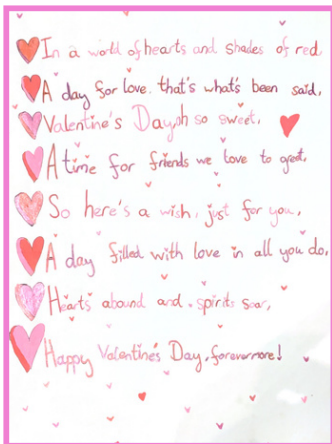 In a world of hearts and shades of red
A day for love. that's what's been said,
Valentine's Day,oh so sweet,
A time for friends we love to greet,
So here's a wish, just for you,
A day filled with love in all you do,
Hearts abound and spirits soar,
Happy Valentine's Day, forevermore!